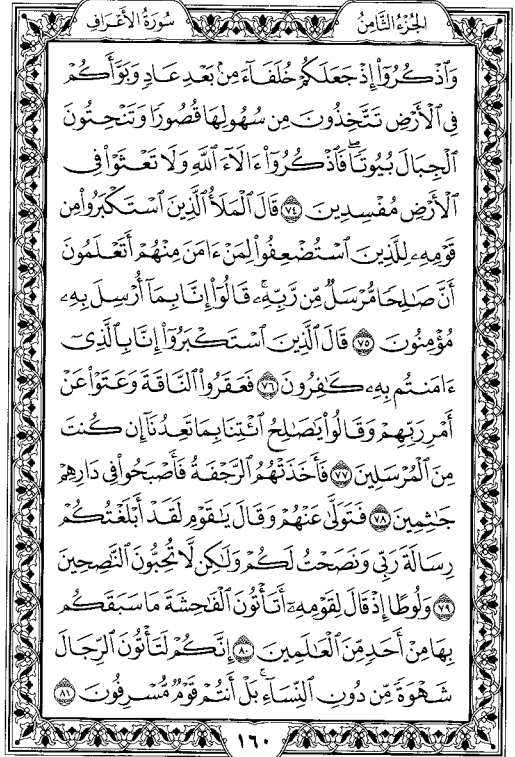 الجُزْءُ الثَّامِنُ سُورَةُ الأَعْرَافِ
وَٱذْكُرُوٓا۟ إِذْ جَعَلَكُمْ خُلَفَآءَ مِنۢ بَعْدِ عَادٍ وَبَوَّأَكُمْ
فِى ٱلْأَرْضِ تَتَّخِذُونَ مِن سُهُولِهَا قُصُورًا وَتَنْحِتُونَ
ٱلْجِبَالَ بُيُوتًا ۖ فَٱذْكُرُوٓا۟ ءَالَآءَ ٱللَّهِ وَلَا تَعْثَوْا۟ فِى
ٱلْأَرْضِ مُفْسِدِينَ ٧٤ قَالَ ٱلْمَلَأُ ٱلَّذِينَ ٱسْتَكْبَرُوا۟ مِن
قَوْمِهِۦ لِلَّذِينَ ٱسْتُضْعِفُوا۟ لِمَنْ ءَامَنَ مِنْهُمْ أَتَعْلَمُونَ
أَنَّ صَـٰلِحًا مُّرْسَلٌ مِّن رَّبِّهِۦ ۚ قَالُوٓا۟ إِنَّا بِمَآ أُرْسِلَ بِهِۦ
مُؤْمِنُونَ ٧٥ قَالَ ٱلَّذِينَ ٱسْتَكْبَرُوٓا۟ إِنَّا بِٱلَّذِىٓ
ءَامَنتُم بِهِۦ كَـٰفِرُونَ ٧٦ فَعَقَرُوا۟ ٱلنَّاقَةَ وَعَتَوْا۟ عَنْ
أَمْرِ رَبِّهِمْ وَقَالُوا۟ يَـٰصَـٰلِحُ ٱئْتِنَا بِمَا تَعِدُنَآ إِن كُنتَ
مِنَ ٱلْمُرْسَلِينَ ٧٧ فَأَخَذَتْهُمُ ٱلرَّجْفَةُ فَأَصْبَحُوا۟ فِى دَارِهِمْ
جَـٰثِمِينَ ٧٨ فَتَوَلَّىٰ عَنْهُمْ وَقَالَ يَـٰقَوْمِ لَقَدْ أَبْلَغْتُكُمْ
رِسَالَةَ رَبِّى وَنَصَحْتُ لَكُمْ وَلَـٰكِن لَّا تُحِبُّونَ ٱلنَّـٰصِحِينَ
٧٩ وَلُوطًا إِذْ قَالَ لِقَوْمِهِۦٓ أَتَأْتُونَ ٱلْفَـٰحِشَةَ مَا سَبَقَكُم
بِهَا مِنْ أَحَدٍ مِّنَ ٱلْعَـٰلَمِينَ ٨٠ إِنَّكُمْ لَتَأْتُونَ ٱلرِّجَالَ
شَهْوَةً مِّن دُونِ ٱلنِّسَآءِ ۚ بَلْ أَنتُمْ قَوْمٌ مُّسْرِفُونَ ٨١
١٦٠